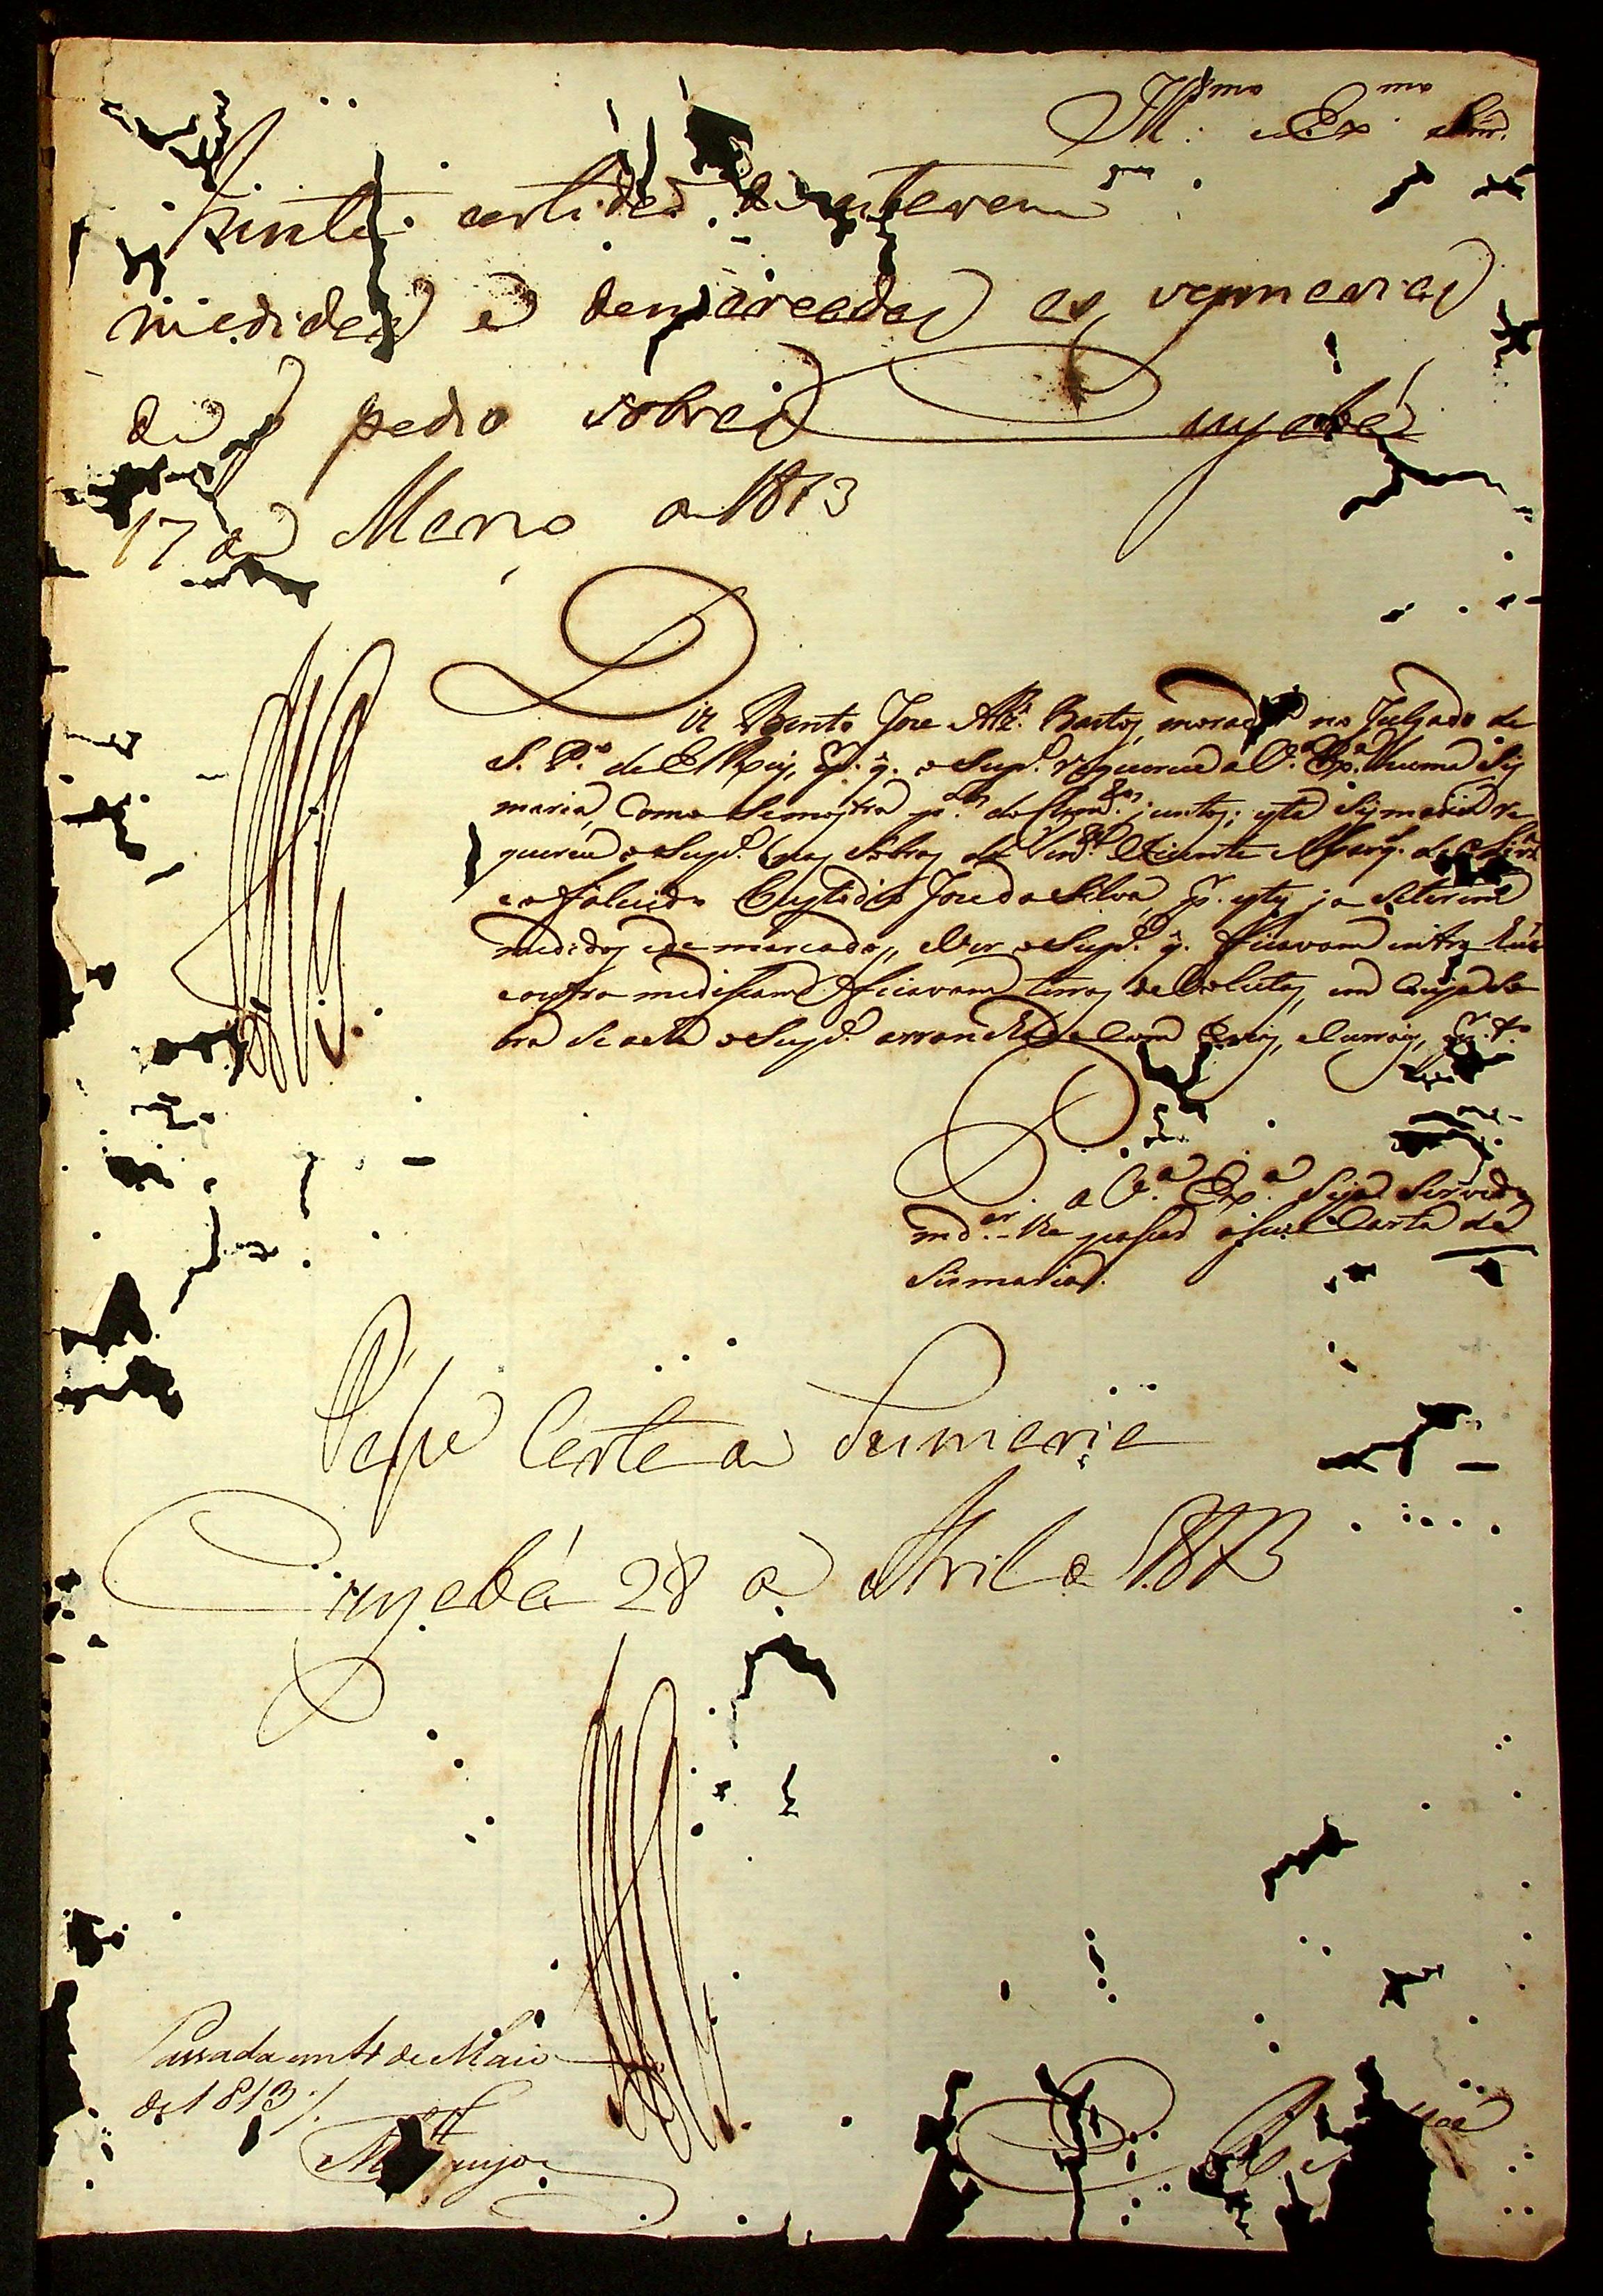 Ill.mo e Ex.mo Snr.
Junte certidão de se terem
medidas e demarcadas as sesmarias
de q pedio sobras Cuyabá
17 de Março de 1813
Diz Bento Joze Alz. Bastos, morador no Julgado de
S. P.o de El Rey, q. o Sup.e requereu a V. Ex.a huma Sis
maria, Como Semostra dos juntos; esta Sismaria re
quereu o Sup.e nas Sobras do Vicente
e o falecido Custodio Joze da Silva, estes ja Seterem
medidos e demarcados, e Ver o Sup.e q. ficavam entre hũa
e outra medisam ficavam terras devolutas, em cuja So
bra Se acha o Sup.e arranchado Com e Currais,
P. a V.a Ex.a Seja Servido
md.ar lhe passar a sua Carta de
Sismaria.
Passe Carta de Sesmaria
Cuyabá 28 de Abril de 1813
Passada em 4 de Maio
de 1813 /.